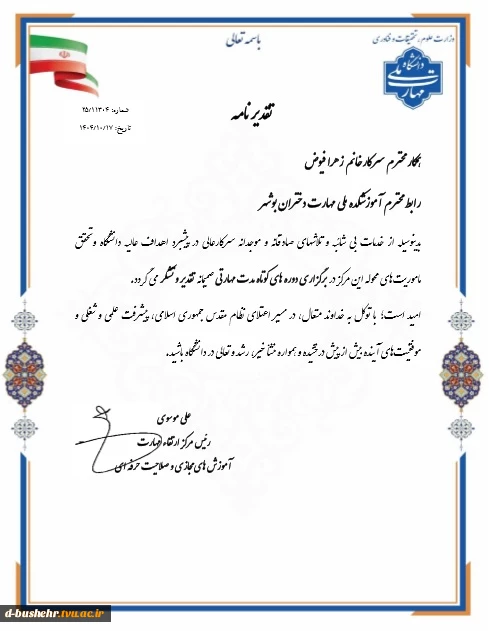 باسمه تعالی
وزارت علوم، تحقیقات و فناوری
دانشگاه
ملی
مهارت
شماره: ۲۵/۱۱۳۰۴
تاریخ: ۱۴۰۴/۱۰/۱۷
تقدیرنامه
همکار محترم سرکار خانم زهرا فیوض
رابط محترم آموزشکده ملی مهارت دختران بوشهر
بدینوسیله از خدمات بی شائبه و تلاشهای صادقانه و موجدانه سرکارعالی در پیشبرد اهداف عالیه دانشگاه و تحقق
ماموریت‌های محوله این مرکز در برگزاری دوره های کوتاه مدت مهارتی صمیمانه تقدیر و تشکر می گردد.
امید است؛ با توکل به خداوند متعال، در مسیر اعتلای نظام مقدس جمهوری اسلامی، پیشرفت علمی و شغلی و
موفقیت‌های آینده بیش از پیش درخشیده و همواره منشأ خیر، رشد و تعالی در دانشگاه باشید.
علی موسوی
رئیس مرکز ارتقاء مهارت
آموزش های مجازی و صلاحیت حرفه ای
d-bushehr.tvu.ac.ir